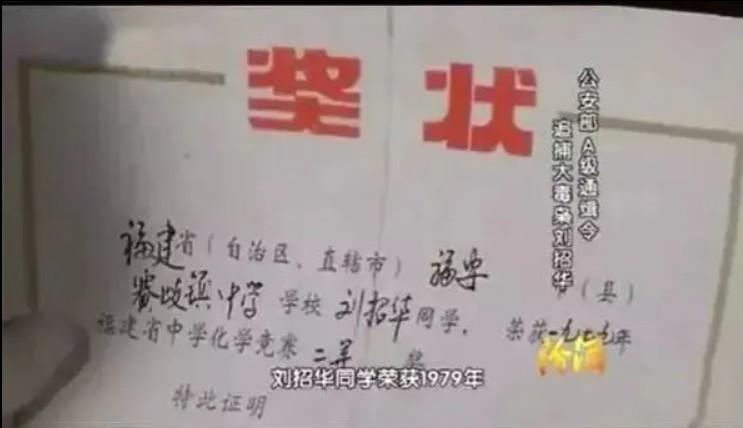 奖状
公安部A级通缉令
追捕大毒枭刘招华
福建省(自治区、直辖市)福安市(县)
赛岐镇中学学校刘招华同学,荣获一九七九年
福建省中学化学竞赛二等奖
特此证明
刘招华同学荣获1979年